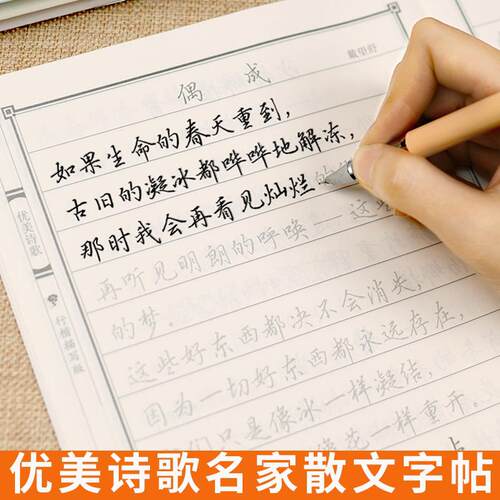 偶成
戴望舒
如果生命的春天重到,
古旧的凝冰都哗哗地解冻,
那时我会再看见灿烂的
再听见明朗的呼唤——这些
的梦。
这些好东西都决不会消失,
因为一切好东西都永远存在,
们只是像冰一样凝结,
花一样重开。
优美诗歌
行楷描写版
优美诗歌名家散文字帖